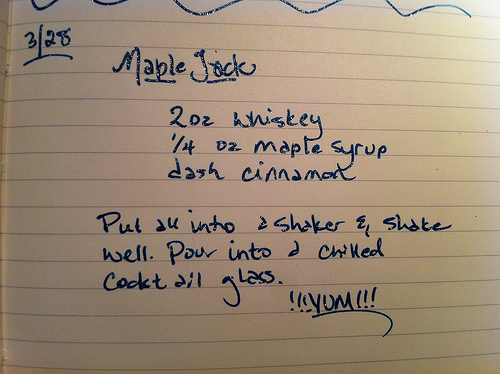 3/28
Maple Jack
2oz whiskey
1/4 oz maple syrup
dash cinnamon
Put all into a shaker & shake
well. Pour into a chilled
cocktail glass.
!!!YUM!!!